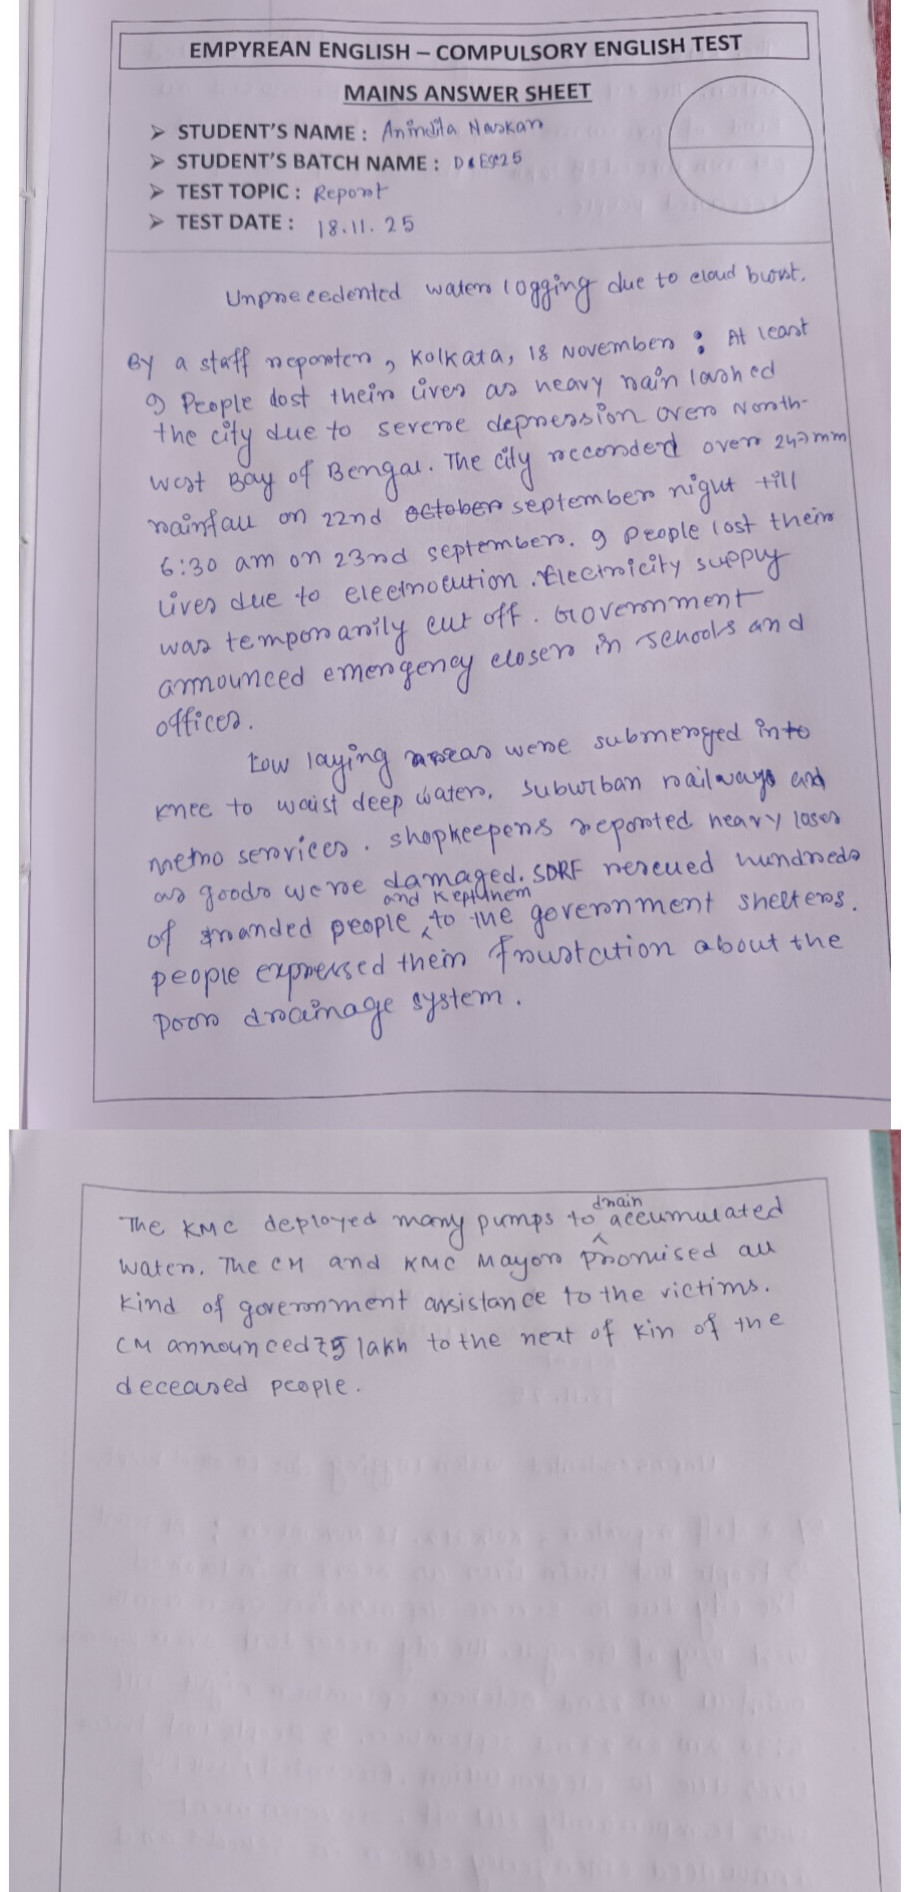 EMPYREAN ENGLISH – COMPULSORY ENGLISH TEST
MAINS ANSWER SHEET
➤ STUDENT'S NAME : Anindita Naskar
➤ STUDENT'S BATCH NAME :
➤ TEST TOPIC : Report
➤ TEST DATE : 18.11.25
Unprecedented water logging due to cloud burst.
By a staff reporter, Kolkata, 18 November : At least
9 People lost their lives as heavy rain lashed
the city due to severe depression over North-
west Bay of Bengal. The city recorded over 247mm
rainfall on 22nd october september night till
6:30 am on 23rd september. 9 people lost their
lives due to electrocution. Electricity supply
was temporarily cut off. Government
announced emergency closer in schools and
offices.
Low laying areas were submerged into
knee to waist deep water. Suburban railways and
metro services. Shopkeepers reported heavy loses
as goods were damaged. SDRF rescued hundreds
of stranded people and kept them to the government shelters.
people expressed their frustation about the
poor drainage system.
The KMC deployed many pumps to drain accumulated
water. The CM and KMC Mayor promised all
kind of government assistance to the victims.
CM announced ₹5 lakh to the next of kin of the
deceased people.